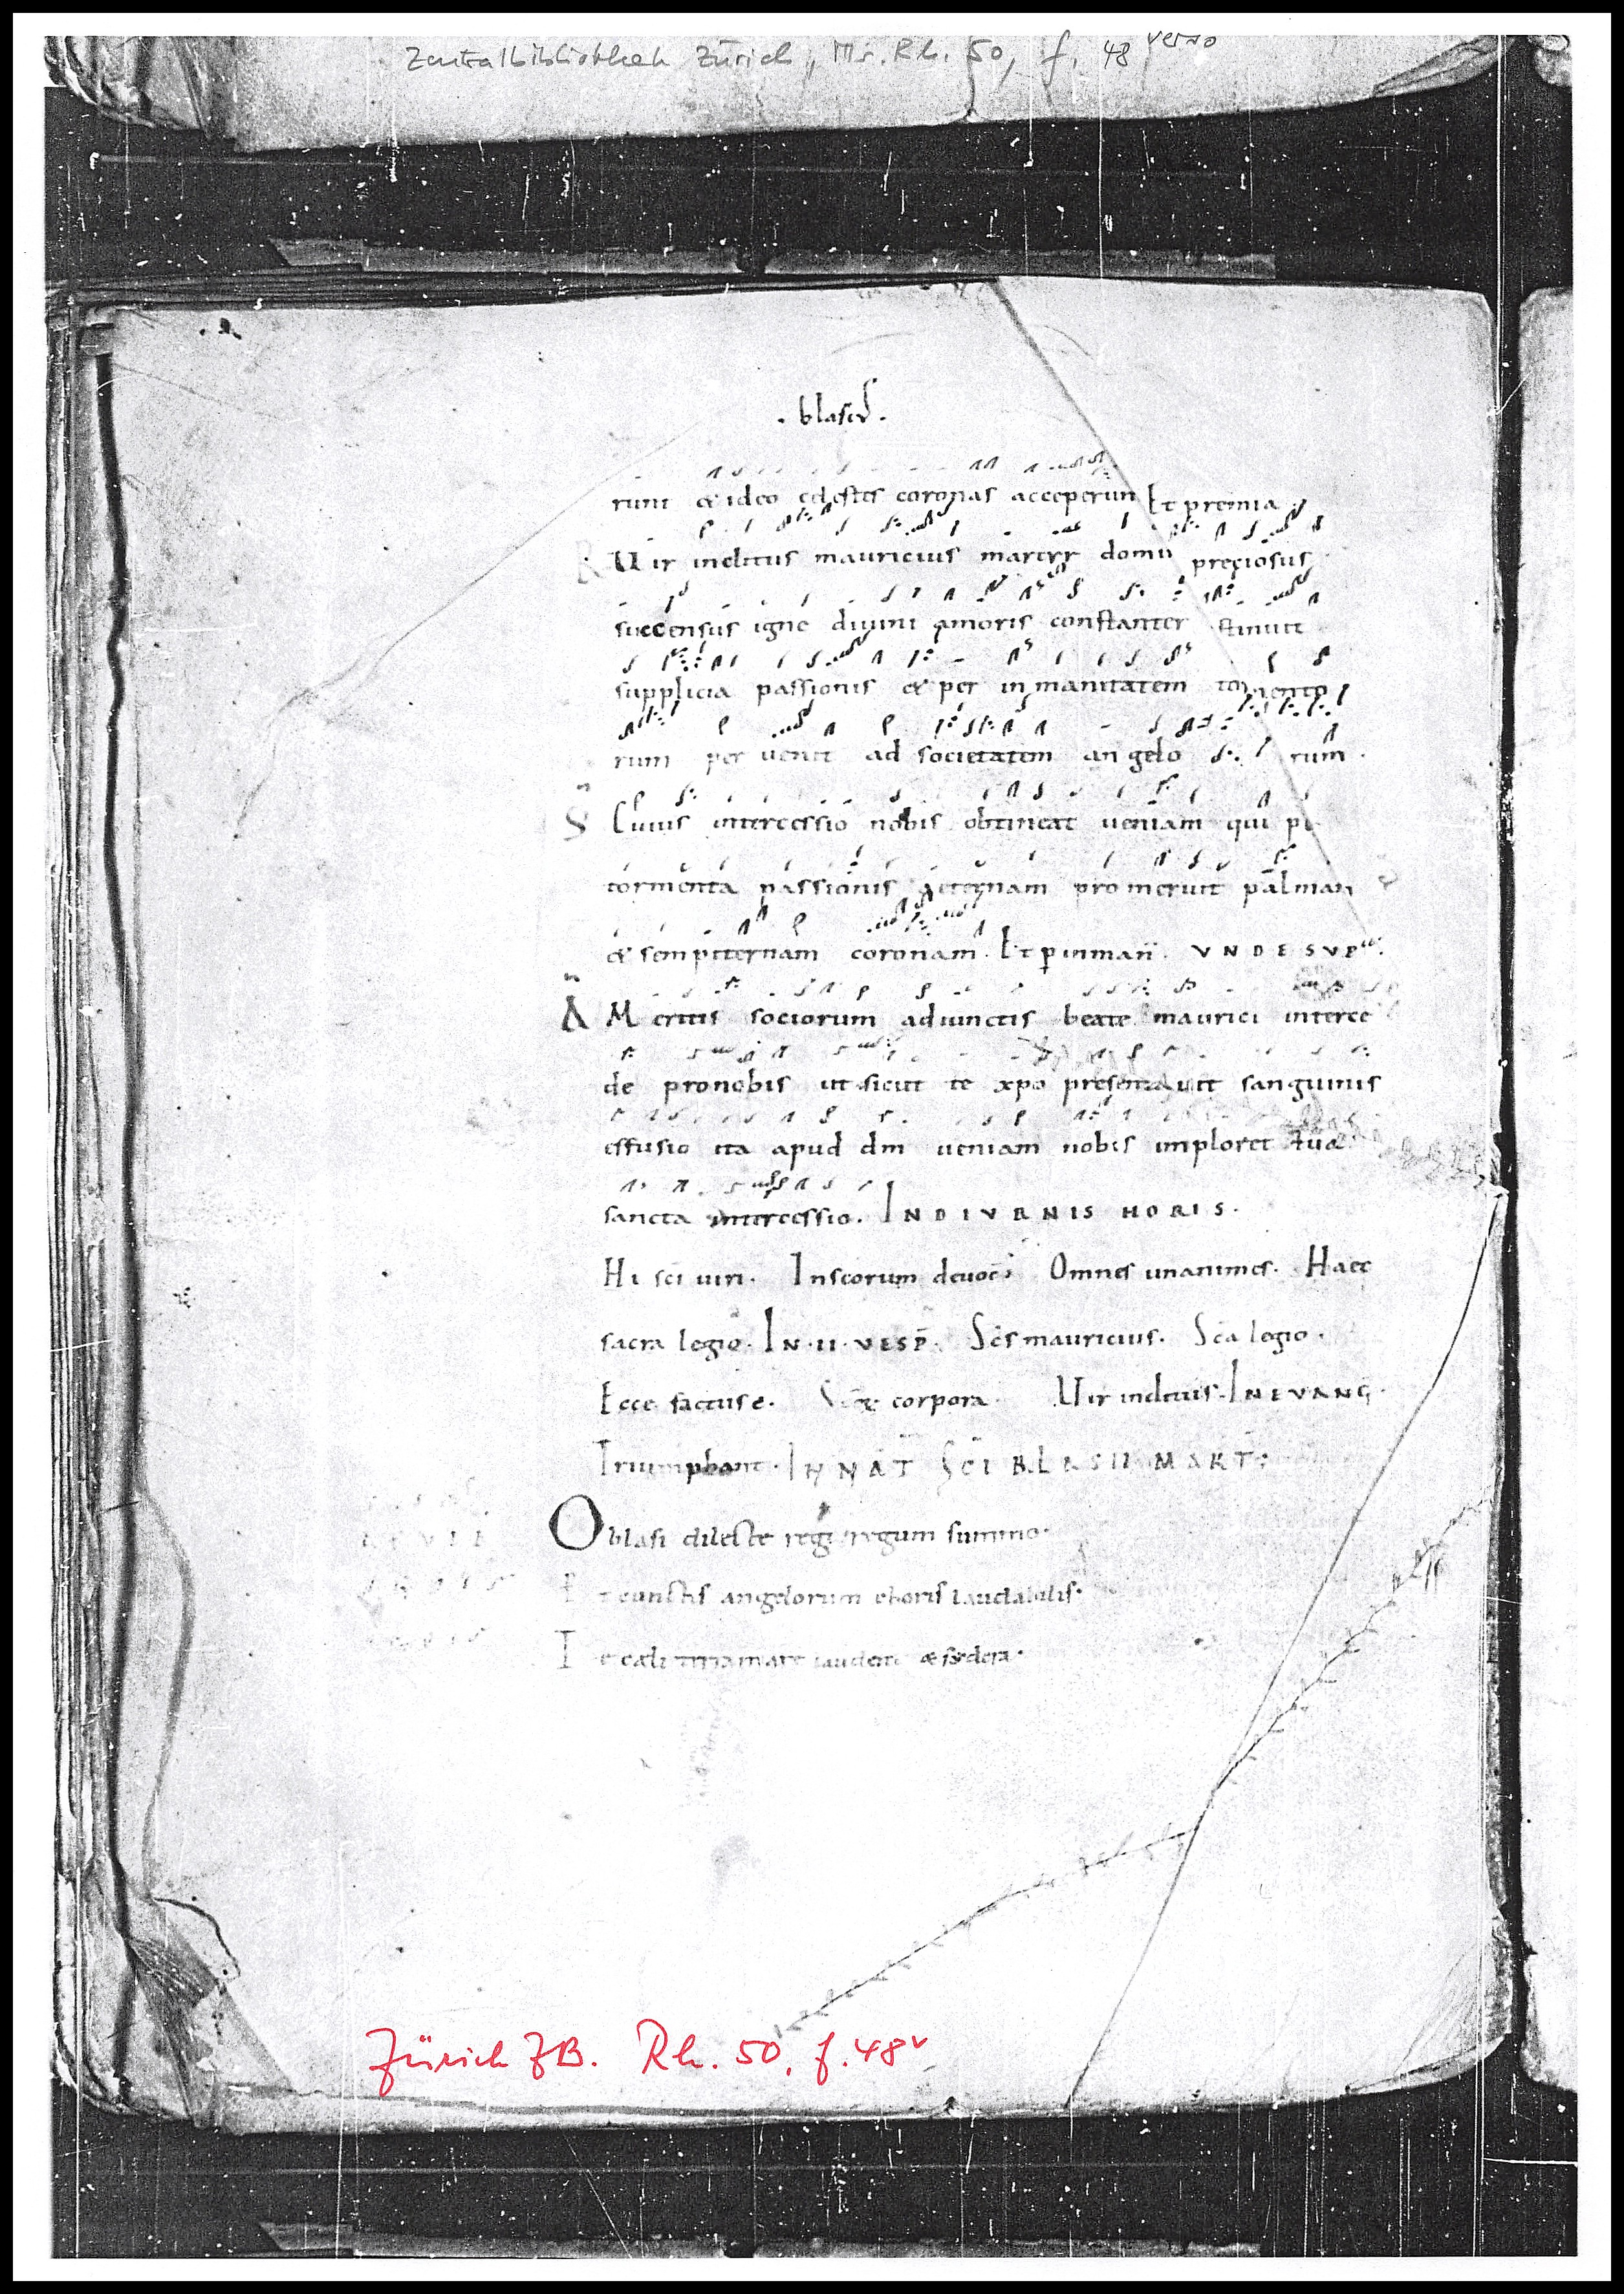 Zentralbibliothek Zürich, Ms. Rh. 50, f. 48 verso
. blasiꝰ .
runt & ideo celestes coronas acceperunt Et premia
R Uir inclitus mauricius martyr domini preciosus
succensus igne diuini amoris constanter stinuit
supplicia passionis & per inmanitatem tormento
rum per uenit ad societatem angelo rum .
Cuius intercessio nobis obtineat ueniam qui p
tormenta passionis aeternam promeruit palmam
& sempiternam coronam . Et ꝑ inmañ . VNDE SVP
A Meritis sociorum adiunctis beate maurici interce
de pronobis ut sicut te xpo presentauit sanguinis
effusio ita apud dm̄ ueniam nobis imploret tua
sancta intercessio . IN DIVRNIS HORIS .
Hi sci uiri . In scorum deuoc̄ Omnes unanimes . Haec
sacra legio . IN . II . VESP̄ . Sc̄s mauricius . Sc̄a legio .
Ecce factus e . corpora Uir inclitus . IN EVANG .
Triumphant . IN NAT̄ SC̄I BLASII MART̄
O blasi dilecte regi regum summo .
Et cunctis angelorum choris laudabilis .
Te celi terra mare laudent & sydera .
Zürich ZB. Rh. 50, f. 48v